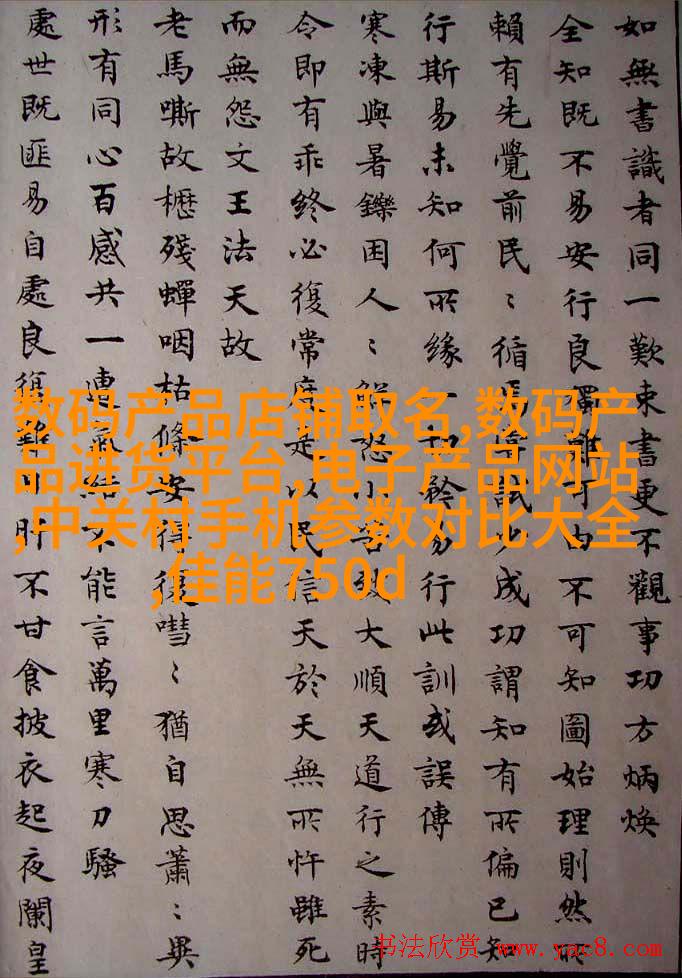 如無書識者同一歎束書更不觀事功方炳煥
全知既不易安行良獨難可由不可知圖始理則然所
賴有先覺前民〻循成功謂知有所偏已知
行斯易未知何所緣一切矜易行此訓或誤傳
寒凍與暑鑠困人〻怨小咨致大順天道行之素時
令即有乖終必復常度是以民信天於天無所忤雖死
而無怨文王法天故
老馬嘶故櫪殘蟬咽枯條安得嘒〻猶自思蕭〻異
形有同心百感共一遭氣結不能言萬里寒刀騷
處世既匪易自處良復難旰不甘食披衣起夜闌皇
数码产品店铺取名,数码产
品进货平台,电子产品网站
,中关村手机参数对比大全
,佳能750d
书法欣赏 www.yac8.com